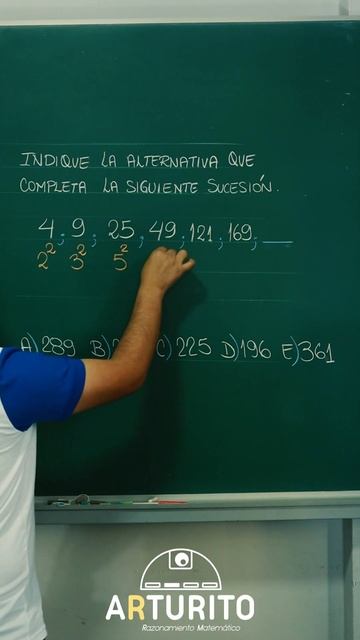 INDIQUE LA ALTERNATIVA QUE
COMPLETA LA SIGUIENTE SUCESIÓN.
4 ; 9 ; 25 ; 49 ; 121 ; 169 ; ___
2² 3² 5²
A) 289 B) C) 225 D) 196 E) 361
ARTURITO
Razonamiento Matemático